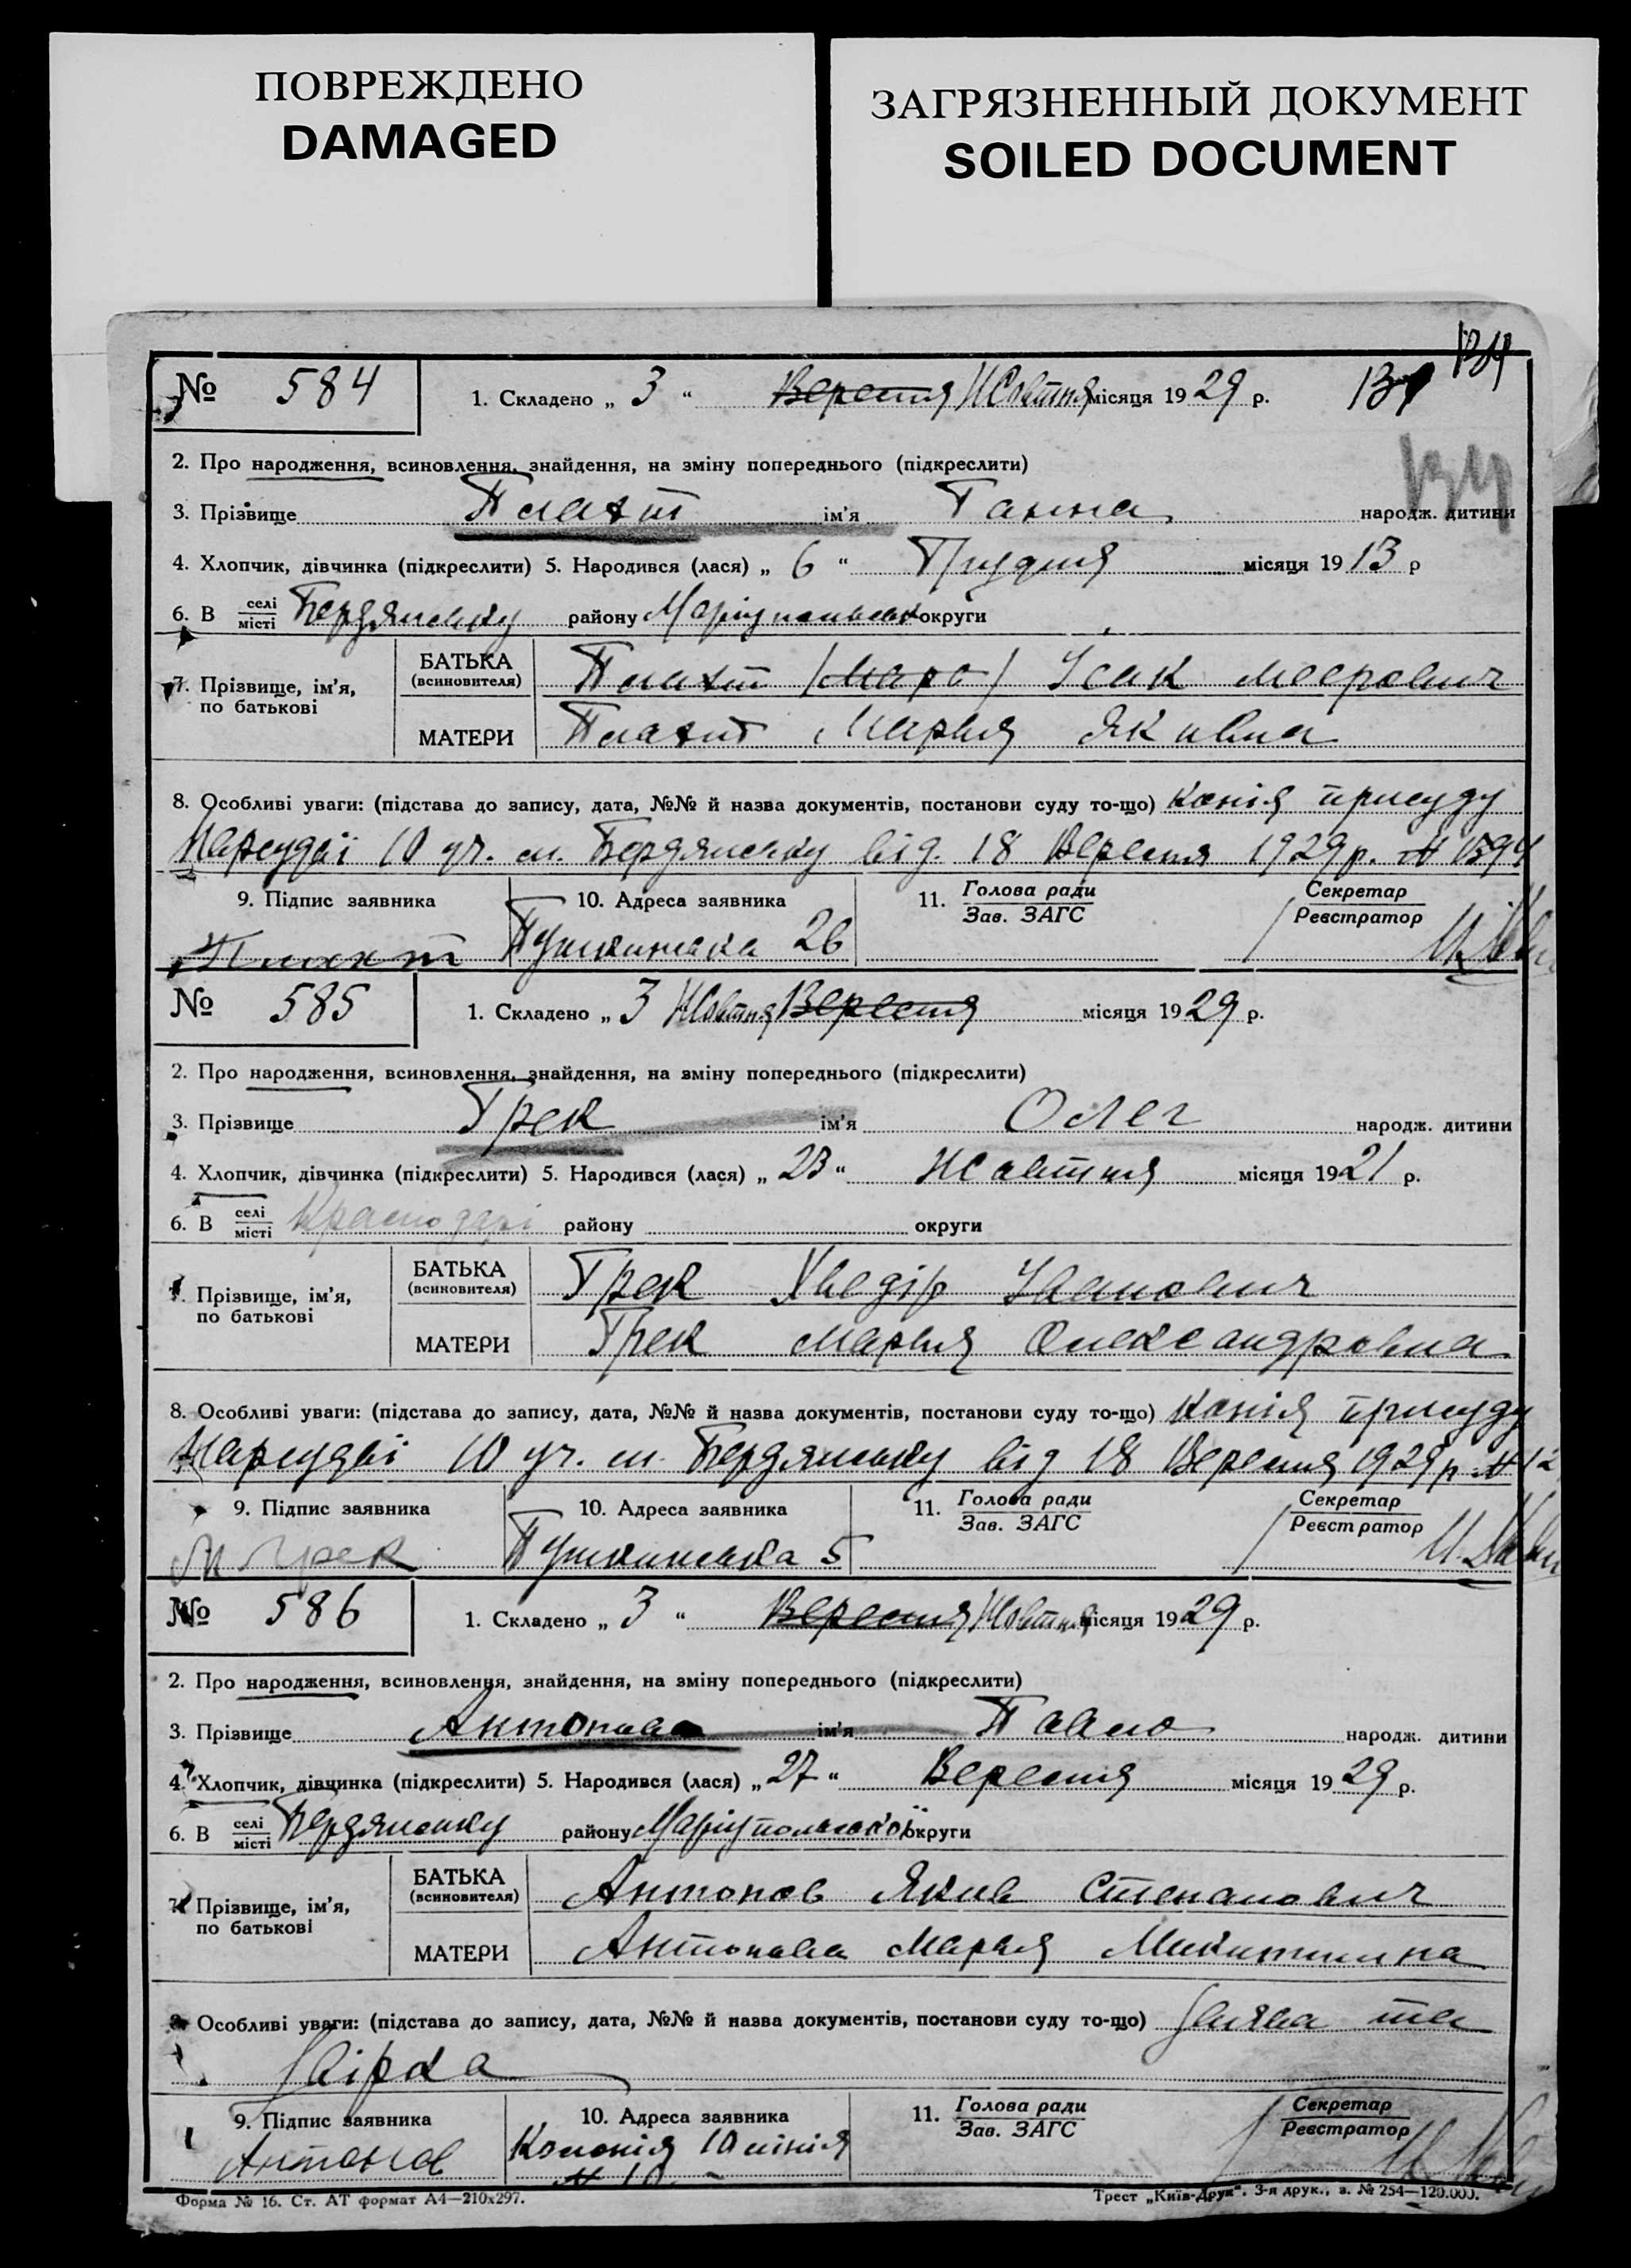 ПОВРЕЖДЕНО
DAMAGED
ЗАГРЯЗНЕННЫЙ ДОКУМЕНТ
SOILED DOCUMENT
134
№ 584
1. Складено „ 3 “ Вересня Жовтня місяця 1929 р.
134
2. Про народження, всиновлення, знайдення, на зміну попереднього (підкреслити)
3. Прізвище Плахт ім'я Ганна народж. дитини
4. Хлопчик, дівчинка (підкреслити) 5. Народився (лася) „ 6 “ Грудня місяця 1913 р
6. В селі місті Бердянську району Маріупольськ округи
7. Прізвище, ім'я, по батькові
БАТЬКА (всиновителя) Плахт /Маро/ Ісак Меерович
МАТЕРИ Плахт Марья Яківна
8. Особливі уваги: (підстава до запису, дата, №№ й назва документів, постанови суду то-що) Копія присуду
Нарсудві 10 уч. м. Бердянську від. 18 Вересня 1929 р. №
9. Підпис заявника
10. Адреса заявника
11. Голова ради Зав. ЗАГС
Секретар Реєстратор
Плахт Пушкинська 26
№ 585
1. Складено „ 3 Жовтня Вересня місяця 1929 р.
2. Про народження, всиновлення, знайдення, на зміну попереднього (підкреслити)
3. Прізвище Грек ім'я Олег народж. дитини
4. Хлопчик, дівчинка (підкреслити) 5. Народився (лася) „ 23 “ Жовтня місяця 1921 р.
6. В селі місті Краснодарі району округи
7. Прізвище, ім'я, по батькові
БАТЬКА (всиновителя) Грек Хведір Іванович
МАТЕРИ Грек Марья Олександровна
8. Особливі уваги: (підстава до запису, дата, №№ й назва документів, постанови суду то-що) Копія присуду
Нарсудві 10 уч. м. Бердянську від 18 Вересня 1929 р. №
9. Підпис заявника
10. Адреса заявника
11. Голова ради Зав. ЗАГС
Секретар Реєстратор
М Грек Пушкинська 5
№ 586
1. Складено „ 3 “ Вересня Жовтня місяця 1929 р.
2. Про народження, всиновлення, знайдення, на зміну попереднього (підкреслити)
3. Прізвище Антонов ім'я Павло народж. дитини
4. Хлопчик, дівчинка (підкреслити) 5. Народився (лася) „ 27 “ Вересня місяця 1929 р.
6. В селі місті Бердянську району Маріупольської округи
7. Прізвище, ім'я, по батькові
БАТЬКА (всиновителя) Антонов Яків Степанович
МАТЕРИ Антонова Марья Микитишна
8. Особливі уваги: (підстава до запису, дата, №№ й назва документів, постанови суду то-що) Заява та
довірка
9. Підпис заявника
10. Адреса заявника
11. Голова ради Зав. ЗАГС
Секретар Реєстратор
Антонов Колонія 10 лінія
№ 10
Форма № 16. Ст. АТ формат А4—210х297.
Трест „Київ-Друк“. 3-я друк., з. № 254—120.000.